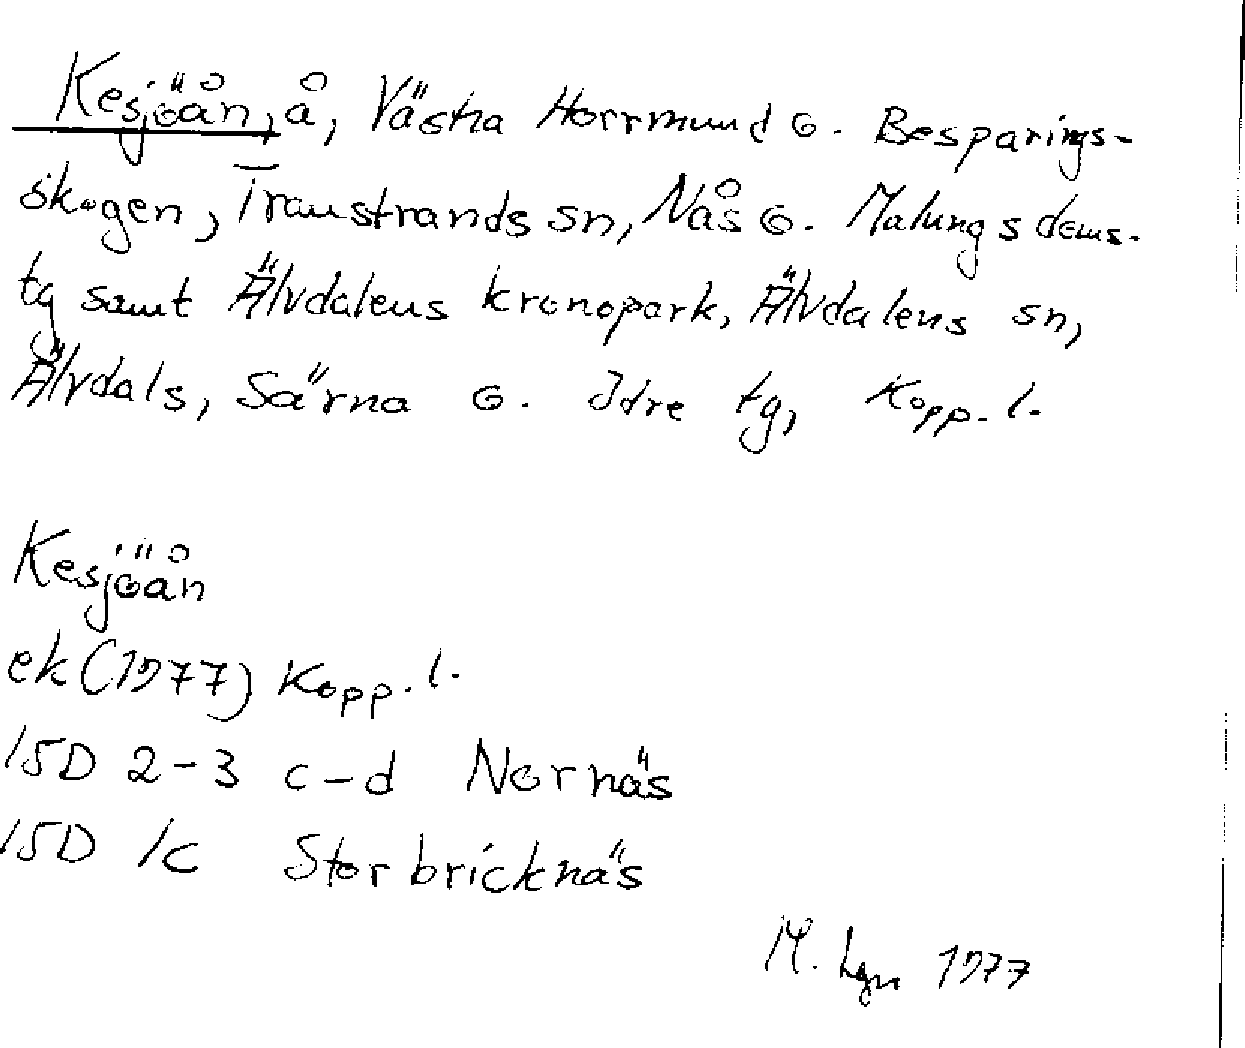 Kesjöån, å, Västra Horrmund o. Besparings-
skogen, Transtrands sn, Nås o. Malungs doms-
tg samt Älvdalens kronopark, Älvdalens sn,
Älvdals, Särna o. Idre tg, Kopp. l.
Kesjöån
ek (1977) Kopp. l.
15D 2-3 c-d Nornäs
15D 1c Storbricknäs
M. Lgn 1977